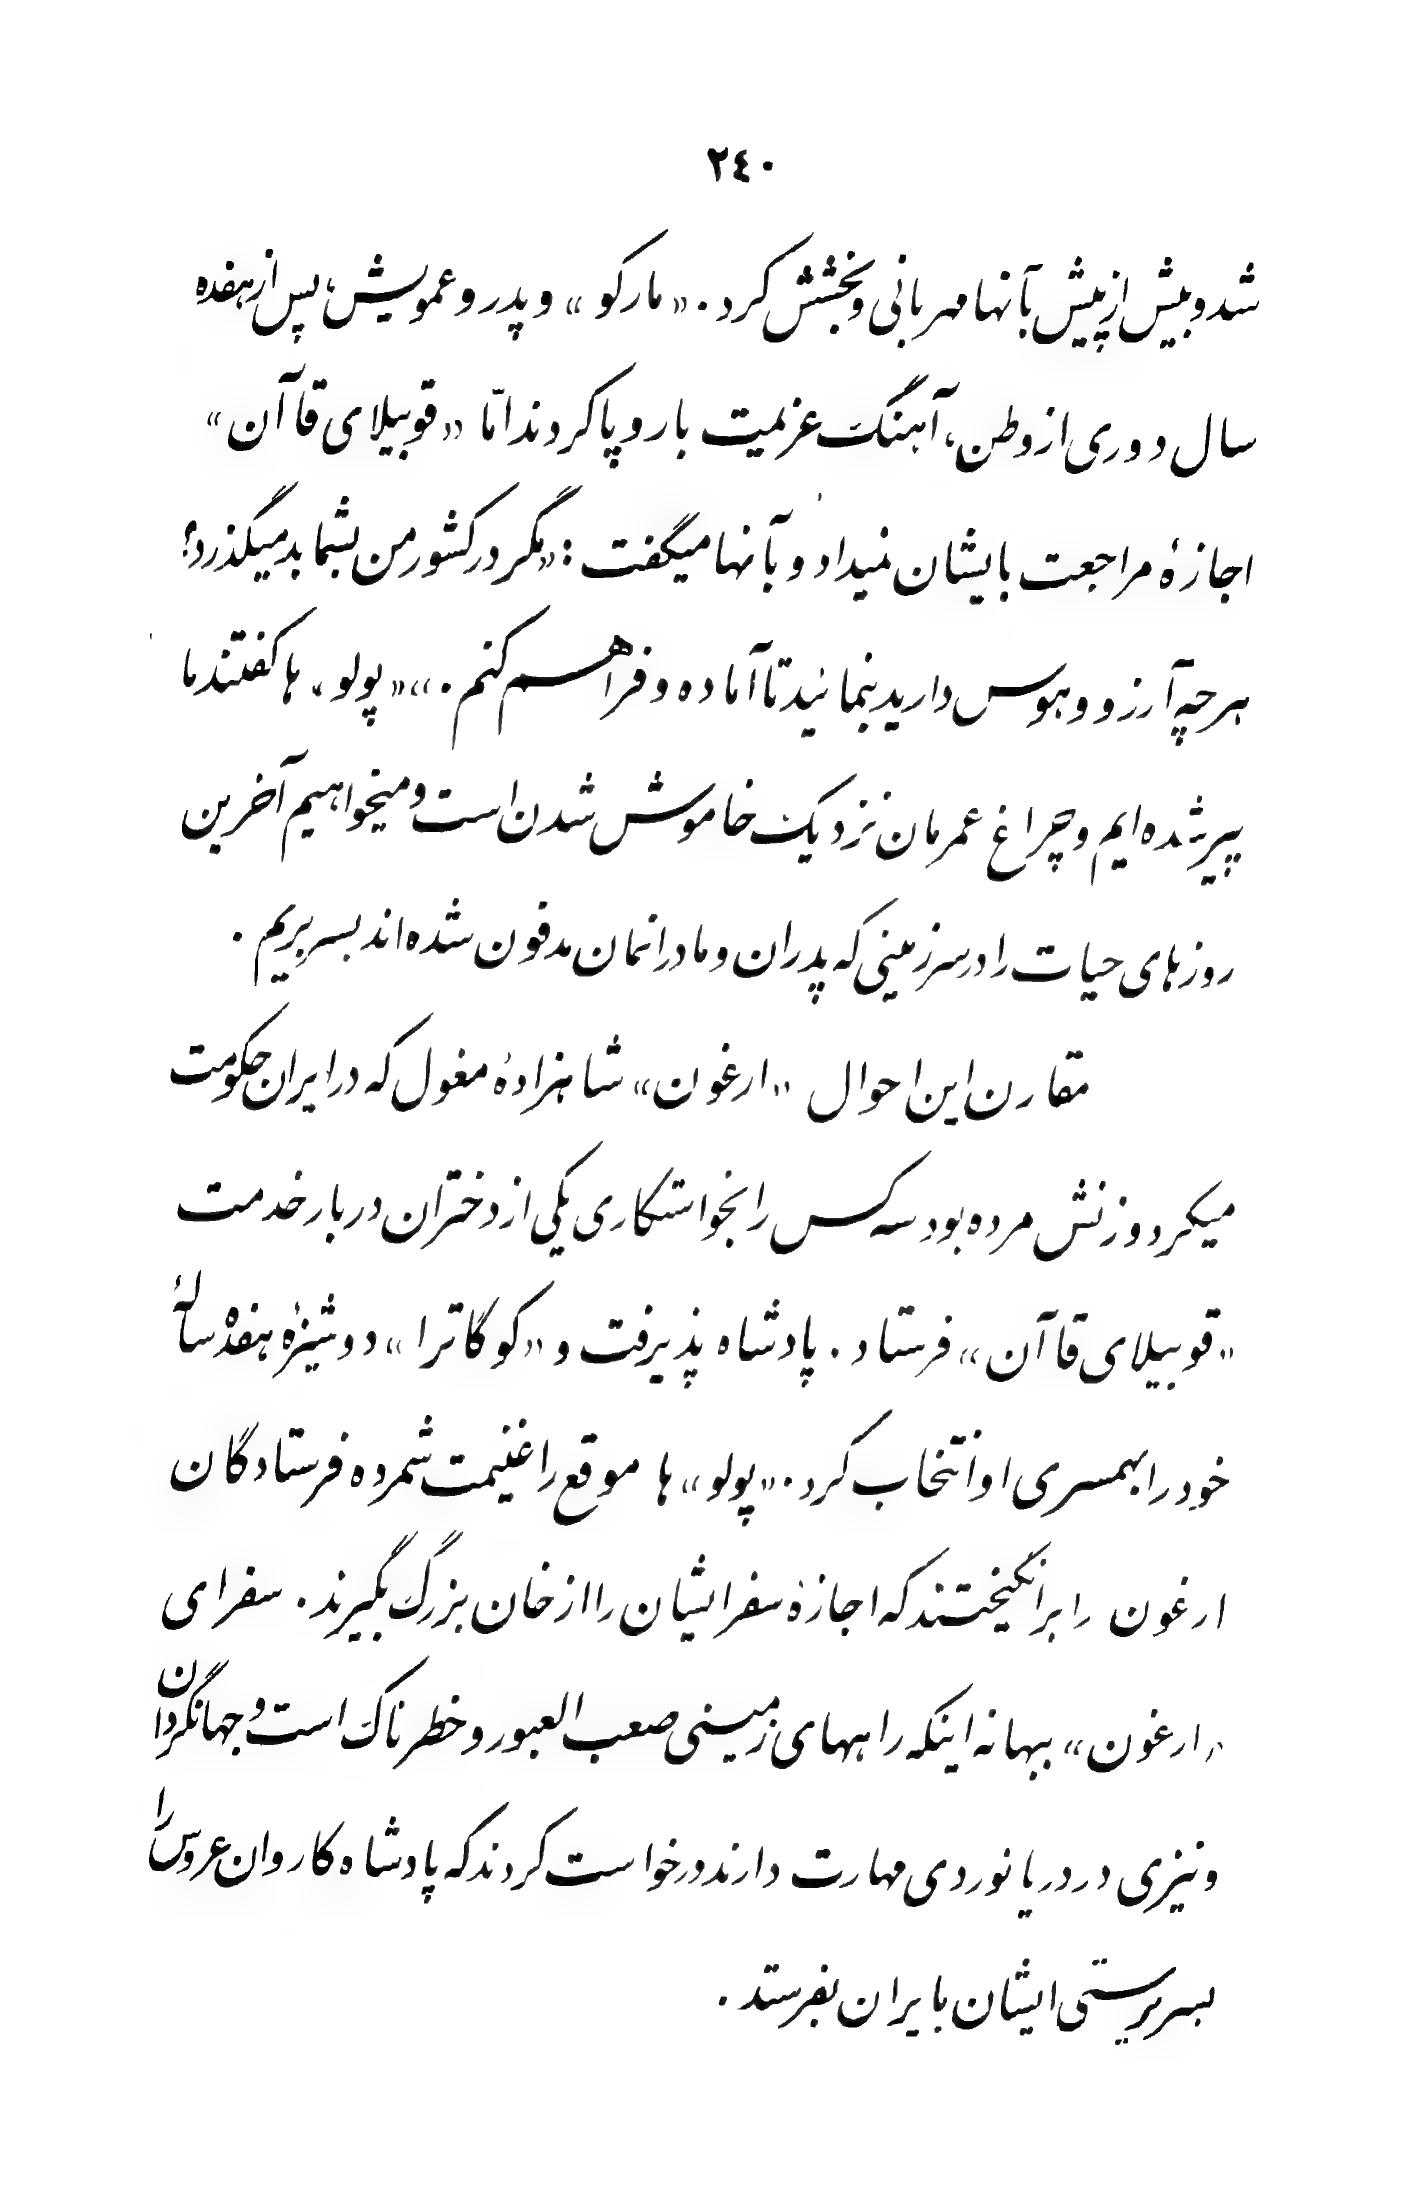 ۲٤۰
شد و بیش از پیش بآنها مهربانی و بخشش کرد. «مارکو» و پدر و عمویش، پس از هفده
سال دوری از وطن، آهنگ عزیمت باروپا کردند امّا «قوبیلای قاآن»
اجازهٔ مراجعت بایشان نمیداد و بآنها میگفت: «مگر در کشور من بشما بد میگذرد؟
هر چه آرزو و هوس دارید بنمائید تا آماده و فراهم کنم.» «پولو» ها گفتند ما
پیر شده ایم و چراغ عمرمان نزدیک خاموش شدن است و میخواهیم آخرین
روزهای حیات را در سرزمینی که پدران و مادرانمان مدفون شده اند بسر بریم.
مقارن این احوال «ارغون» شاهزادهٔ مغول که در ایران حکومت
میکرد و زنش مرده بود سه کس را بخواستگاری یکی از دختران دربار خدمت
«قوبیلای قاآن» فرستاد. پادشاه پذیرفت و «کوگاترا» دوشیزهٔ هفده سالهٔ
خود را بهمسری او انتخاب کرد. «پولو» ها موقع را غنیمت شمرده فرستادگان
ارغون را برانگیختند که اجازهٔ سفر ایشان را از خان بزرگ بگیرند. سفرای
«ارغون» ببهانه اینکه راههای زمینی صعب العبور و خطرناک است و جهانگردان
ونیزی در دریانوردی مهارت دارند درخواست کردند که پادشاه کاروان عروس را
بسرپرستی ایشان بایران بفرستد.